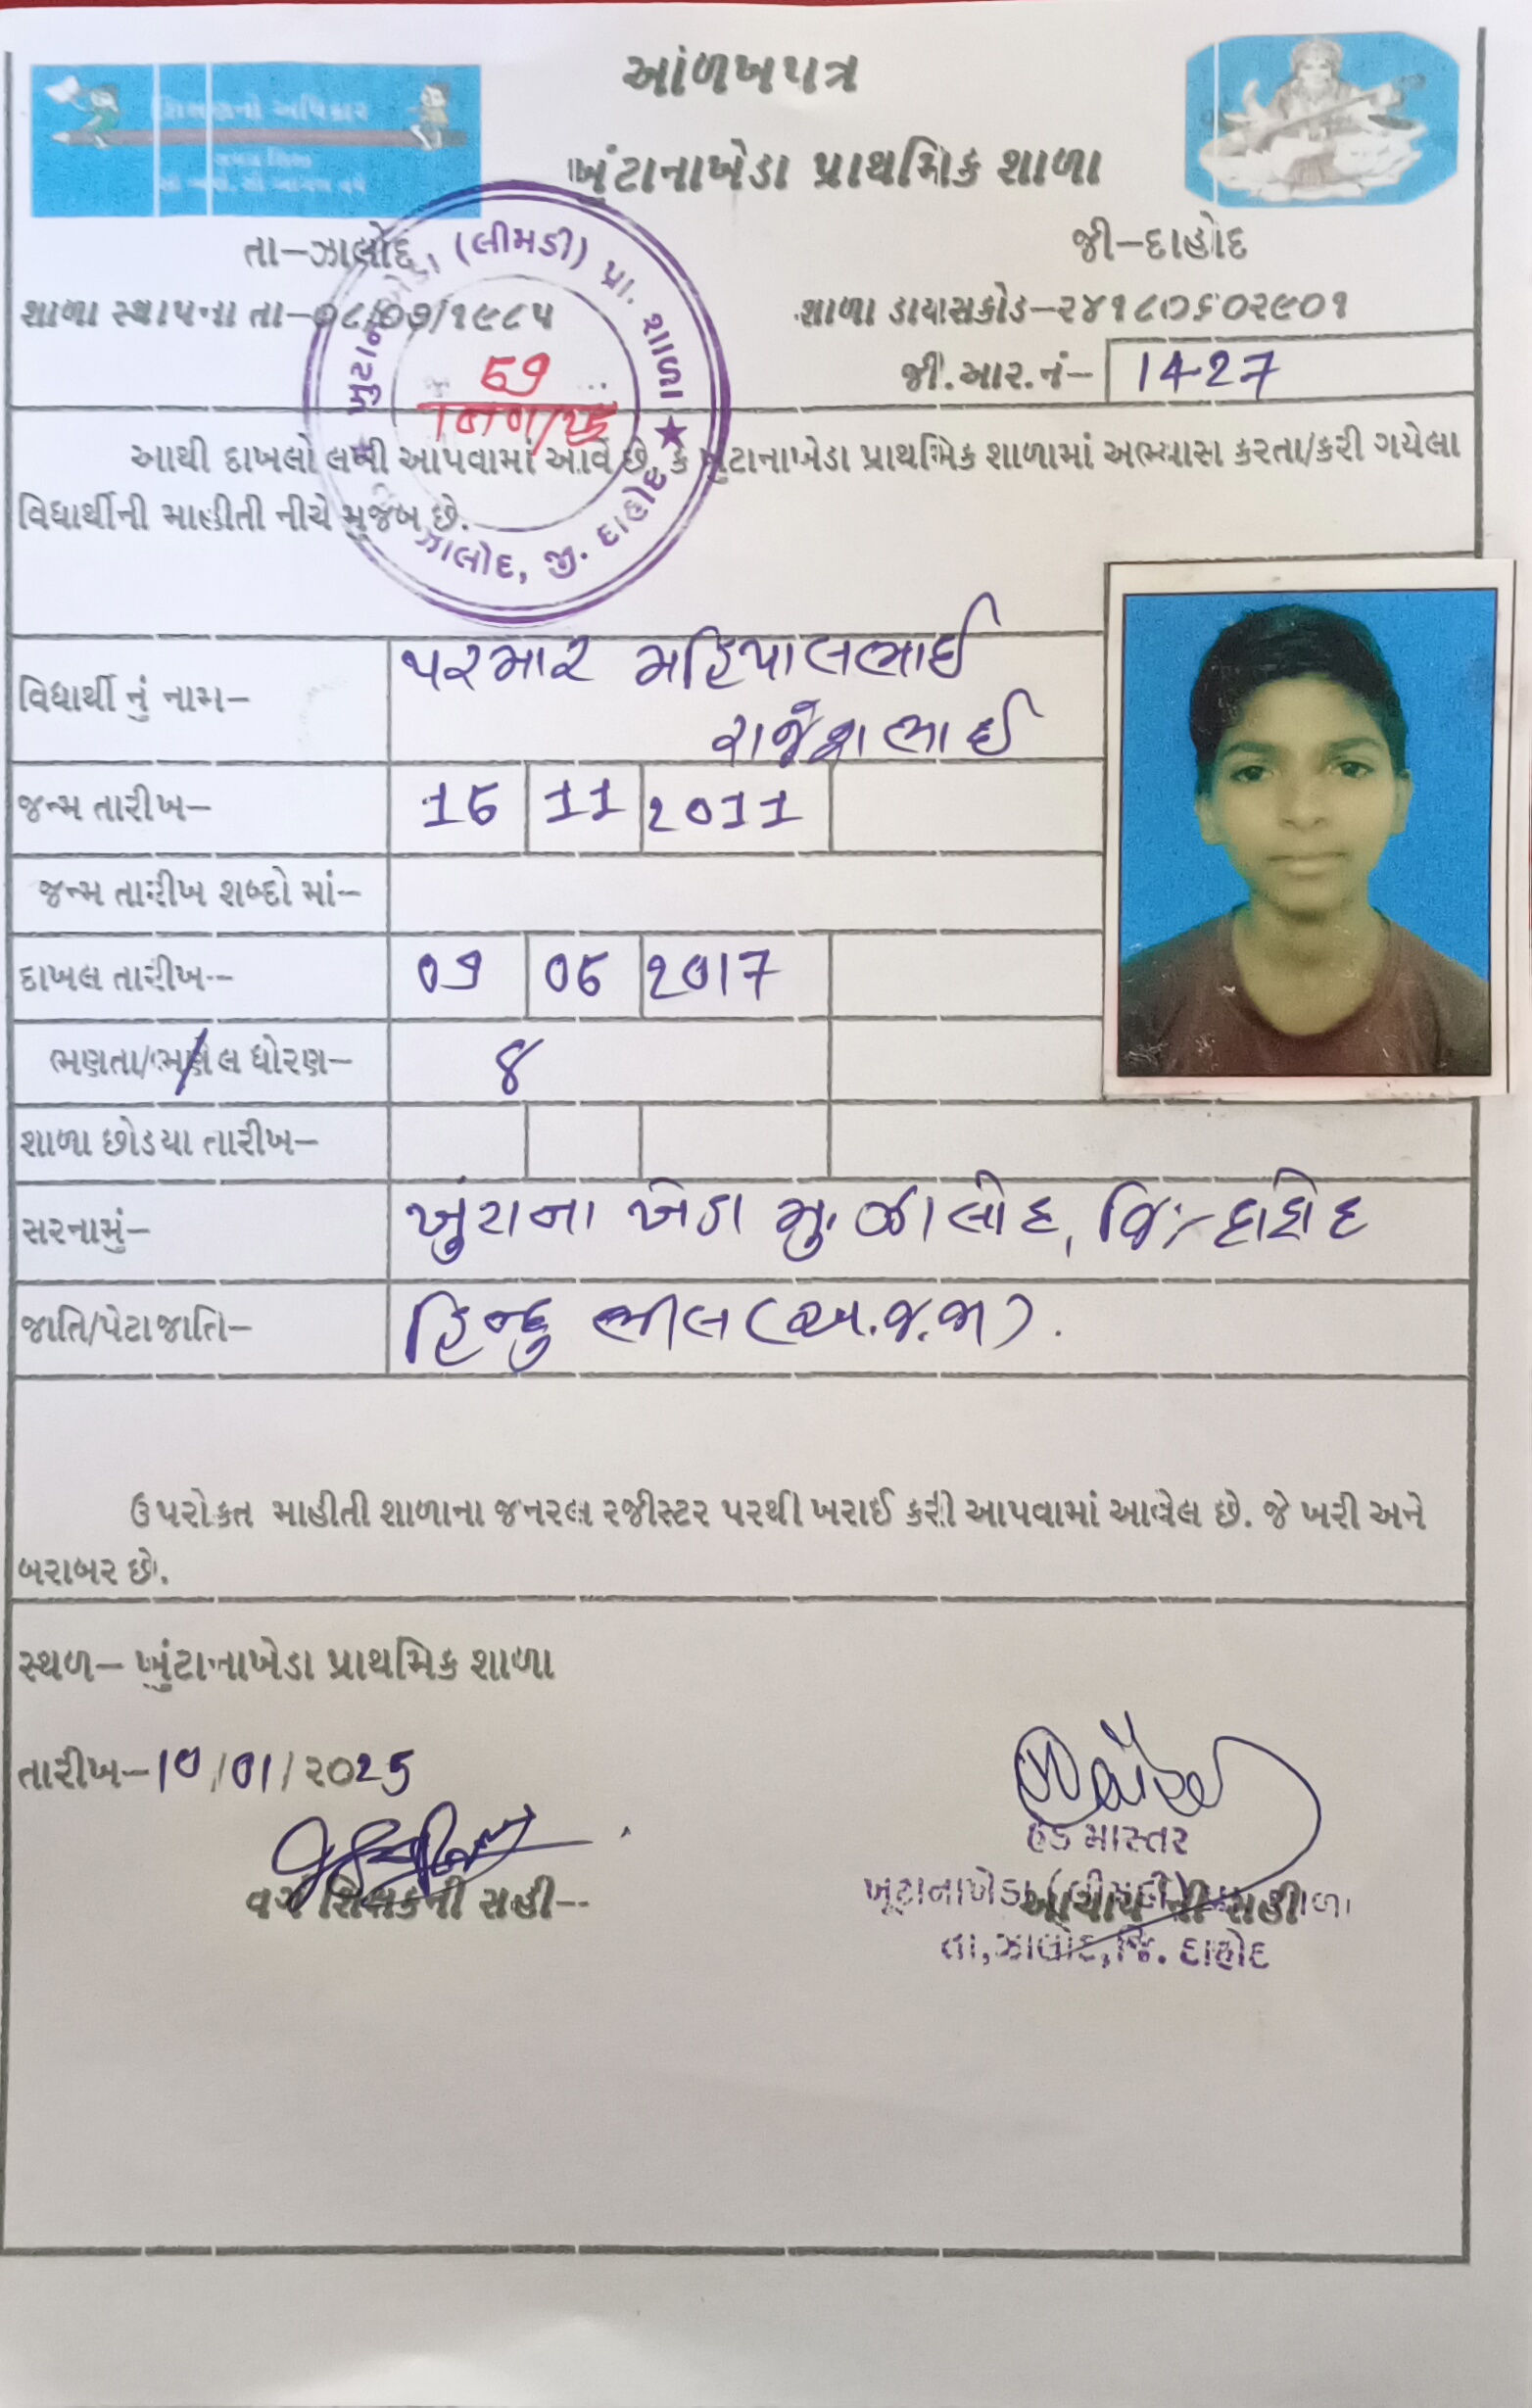 આંળખપત્ર
શિક્ષણનો અધિકાર
ખુંટાનાખેડા પ્રાથમિક શાળા
તા–ઝાલોદ
જી–દાહોદ
શાળા સ્થાપના તા–૦૮/૦૭/૧૯૮૫
શાળા ડાયાસકોડ–૨૪૧૮૦૬૦૨૯૦૧
(લીમડી) પ્રા. શાળા ★
ઝાલોદ, જી. દાહોદ
જી.આર.નં– 1427
આથી દાખલો લખી આપવામાં આવે છે કે ખુંટાનાખેડા પ્રાથમિક શાળામાં અભ્યાસ કરતા/કરી ગયેલા
વિધાર્થીની માહીતી નીચે મુજબ છે.
વિધાર્થી નું નામ– પરમાર મહિપાલભાઈ
રાજેશભાઈ
જન્મ તારીખ– 16 11 2011
જન્મ તારીખ શબ્દો માં–
દાખલ તારીખ-- 09 06 2017
ભણતા/ભણેલ ધોરણ– ૪
શાળા છોડયા તારીખ–
સરનામું– ખુંટાના ખેડા મુ. ઝાલોદ, જિ:- દાહોદ
જાતિ/પેટાજાતિ– હિન્દુ ભીલ (અ.જ.જા).
ઉપરોકત માહીતી શાળાના જનરલ રજીસ્ટર પરથી ખરાઈ કરી આપવામાં આવેલ છે. જે ખરી અને
બરાબર છે.
સ્થળ– ખુંટાનાખેડા પ્રાથમિક શાળા
તારીખ–10/01/૨૦25
હેડ માસ્તર
વર્ગ શિક્ષકની સહી--
ખૂટાનાખેડા (લીમડી) પ્રા. શાળા
આચાર્ય ની સહી
તા,ઝાલોદ,જિ. દાહોદ